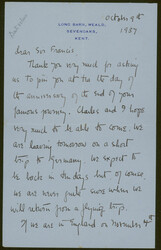 October 9th
1937
LONG BARN, WEALD,
SEVENOAKS,
KENT.
Dear Sir Francis
Thank you very much for asking
us to join you at tea the day of
the anniversary of the end of your
famous journey. Charles and I hope
very much to be able to come. We
are leaving tomorrow on a short
trip to Germany. We expect to
be back in ten days but of course,
we are never quite sure when we
will return from a flying trip.
If we are in England on November 4th